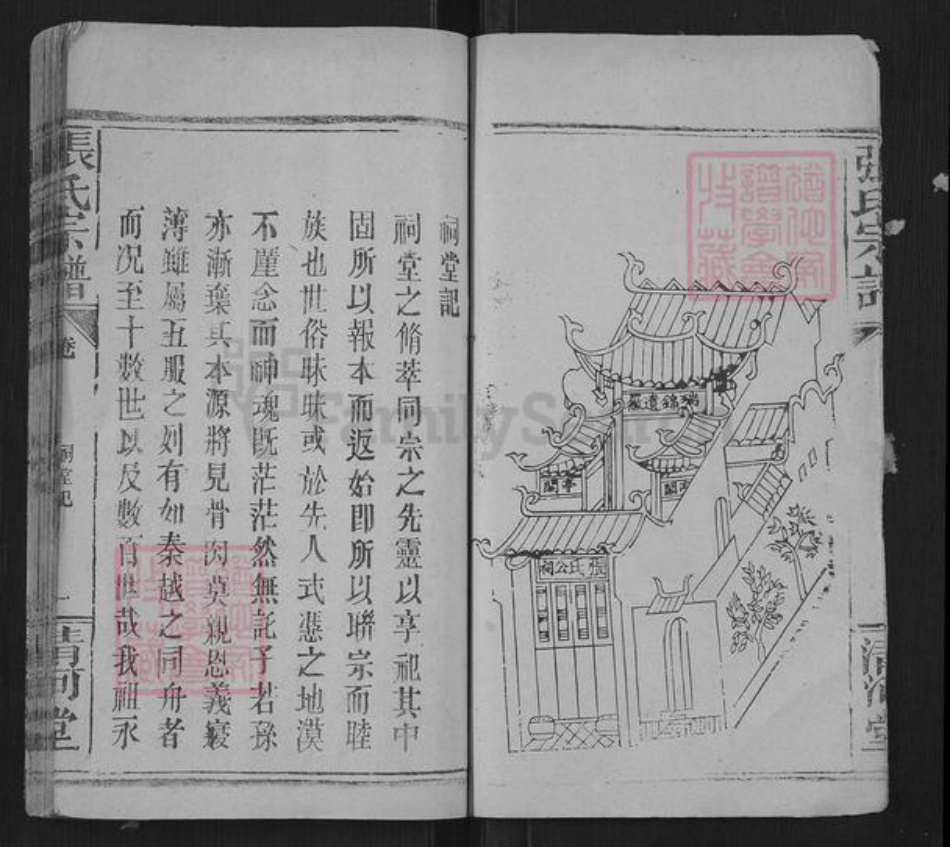 張氏宗譜
清河堂
瑞錦遺
亭閣
張氏公祠
祠堂記
祠堂之脩萃同宗之先靈以享祀其中
固所以報本而返始即所以聯宗而睦
族也世俗昧昧或於先人式憑之地漠
不厪念而神魂既茫茫然無託子若孫
亦漸棄其本源將見骨肉莫親恩義衰
薄雖屬五服之列有如秦越之同舟者
而况至十數世以及數百世哉我祖永
張氏宗譜
卷
祠堂記
一
清河堂
FamilySearch